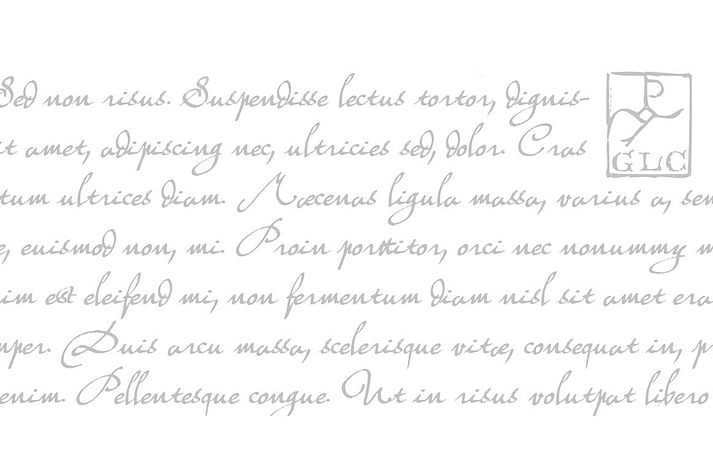 Sed non risus. Suspendisse lectus tortor, dignis-
P
GLC
it amet, adipiscing nec, ultricies sed, dolor. Cras
tum ultrices diam. Mæcenas ligula massa, varius a, sem
e, euismod non, mi. Proin porttitor, orci nec nonummy m
im est eleifend mi, non fermentum diam nisl sit amet era
mper. Duis arcu massa, scelerisque vitæ, consequat in, p
enim. Pellentesque congue. Ut in risus volutpat libero